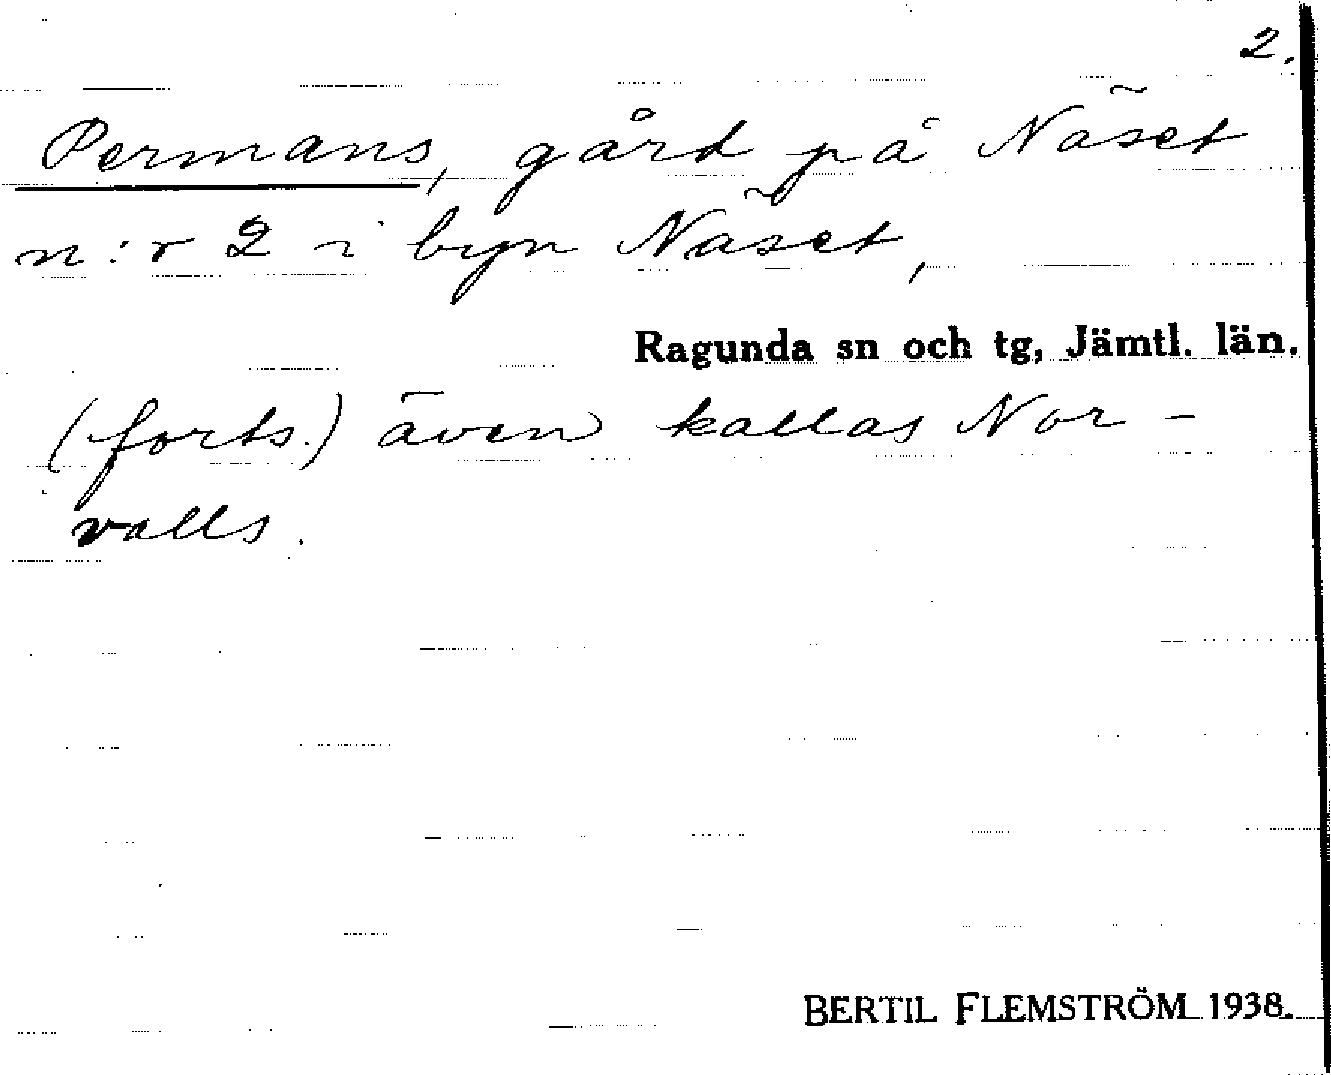 2.
Permans, gård på Näset
n:r 2 i byn Näset,
Ragunda sn och tg, Jämtl. län.
(forts.) även kallas Nor-
valls.
BERTIL FLEMSTRÖM 1938.